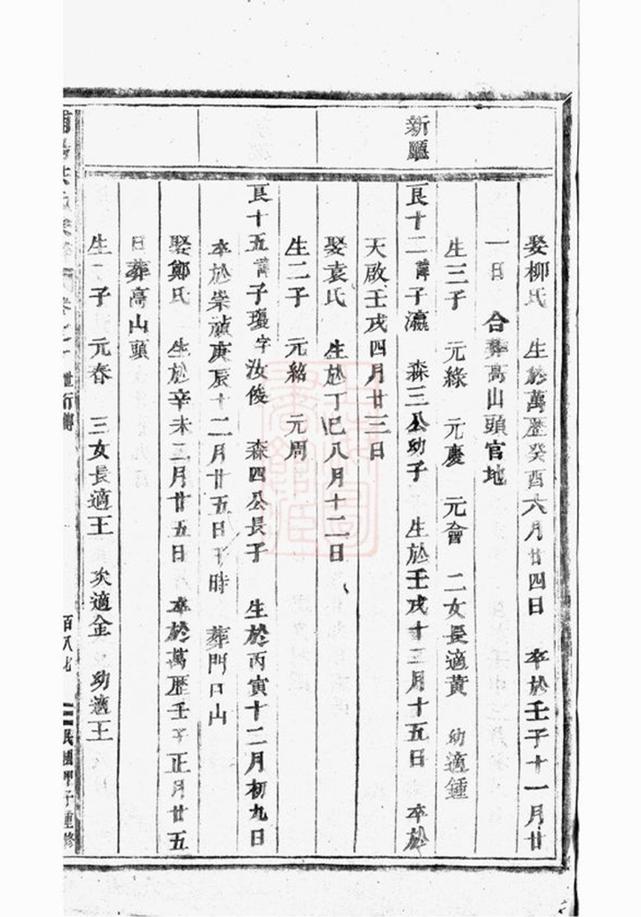 娶柳氏　生於萬歷癸酉六月廿四日　卒於壬子十一月廿
一日　合葬高山頭官地
生三子　元綠　元慶　元會　二女長適黃　幼適鍾
新廳
良十二諱子瀛　森三公幼子　生於壬戌十二月十五日　卒於
天啟壬戌四月廿三日
娶袁氏　生於丁巳八月十二日
生二子　元銘　元周
良十五諱子瓊字汝俊　森四公長子　生於丙寅十二月初九日
卒於崇禎庚辰十二月廿五日子時　葬門口山
娶鄭氏　生於辛未二月廿五日　卒於萬歷壬子正月廿五
日葬高山頭
生一子　元春　三女長適王　次適金　幼適王
卷之　世行傳　百八七　民國甲子重修